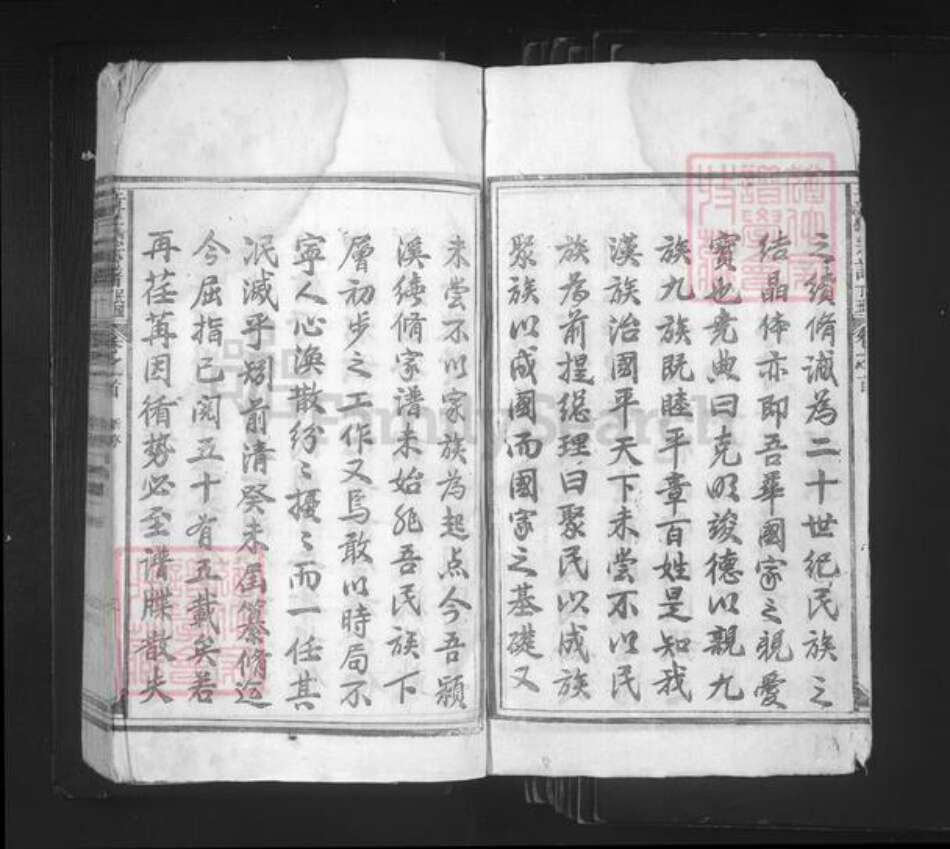 之續脩誠為二十世紀民族之
結晶体亦即吾華國家之親愛
寶也堯典曰克明峻德以親九
族九族既睦平章百姓是知我
漢族治國平天下未尝不以民
族為前提総理曰聚民以成族
聚族以成國而國家之基礎又
未尝不以家族為起点今吾潁
溪續脩家譜未始非吾民族下
層初步之工作又烏敢以時局不
寧人心渙散紛〻擾〻而一任其
泯滅乎矧前清癸未纂脩迄
今屈指已閱五十有五載矣若
再荏苒因循勢必至譜牒散失
FamilySearch